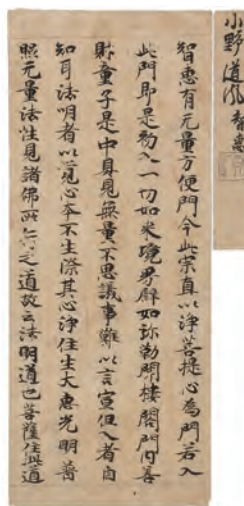 小野道風
智惠有无量方便門今此宗直以淨菩提心為門若入
此門即是初入一切如来境界辟如弥勒開樓閣門内善
財童子是中具見無量不思議事難以言宣但入者自
知耳法明者以覺心本不生際其心淨住生大惠光明普
照无量法性見諸佛所行之道故云法明道也菩薩住此道